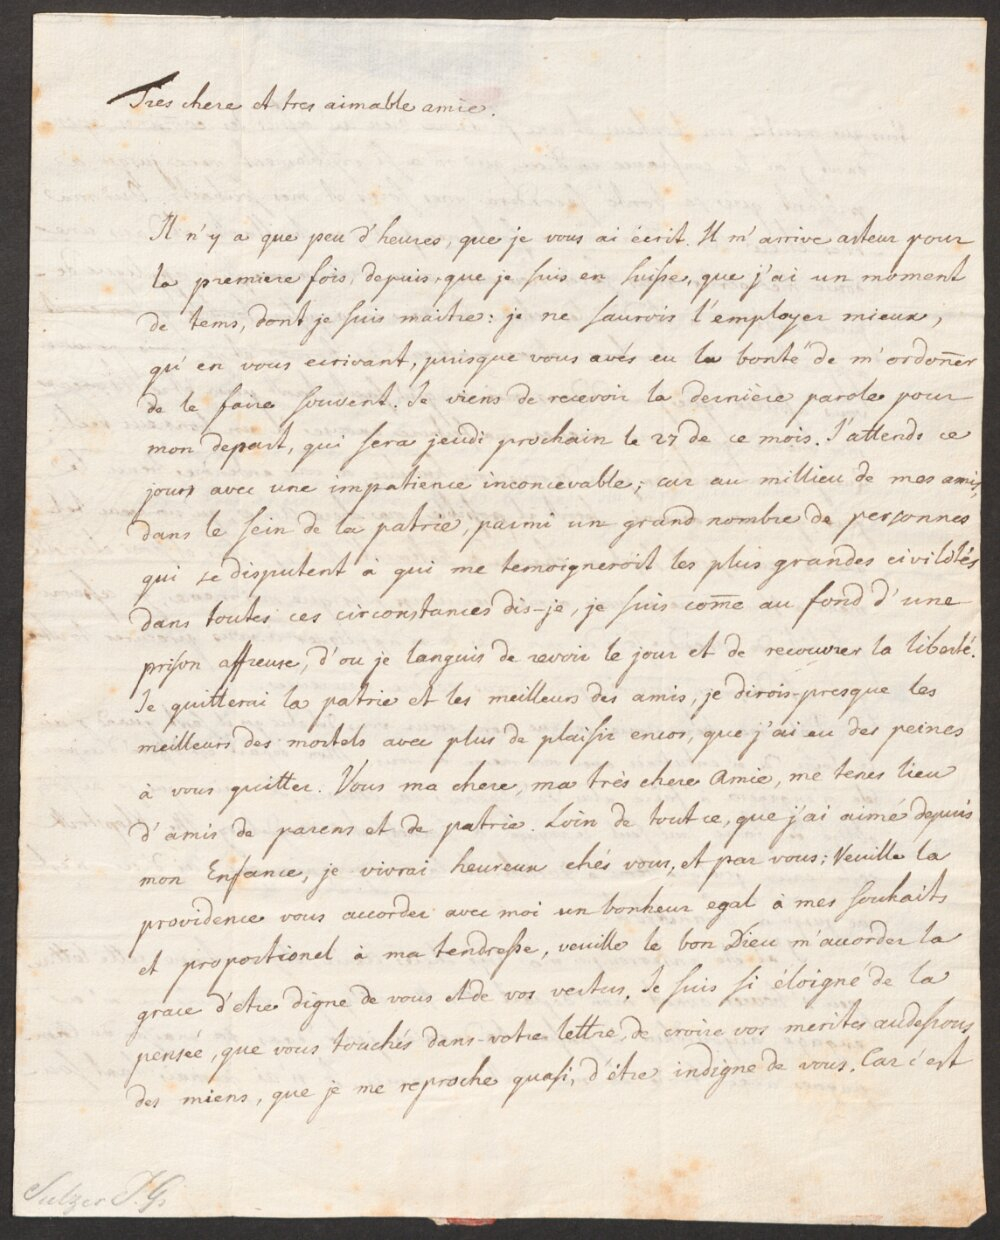 Tres chere et tres aimable amie.
Il n'y a que peu d'heures, que je vous ai écrit. Il m'arrive asteur pour
la premiere fois, depuis, que je suis en Suisse, que j'ai un moment
de tems, dont je suis maitre: je ne saurois l'employer mieux,
qu'en vous ecrivant, puisque vous avés eu la bonté de m'ordoñer
de le faire souvent. Je viens de recevoir la dernière parole pour
mon depart, qui sera jeudi prochain le 27 de ce mois. J'attends ce
jour avec une impatience inconcevable; car au millieu de mes amis,
dans le sein de la patrie, parmi un grand nombre de personnes
qui se disputent à qui me temoigneroit les plus grandes civilités
dans toutes ces circonstances dis-je, je suis com̄e au fond d'une
prison affreuse, d'ou je languis de revoir le jour et de recouvrer la liberté.
Je quitterai la patrie et les meilleurs des amis, je dirois-presque les
meilleurs des mortels avec plus de plaisir encor, que j'ai eu des peines
à vous quitter. Vous ma chere, ma très chere Amie, me tenes lieu
d'amis de parens et de patrie. Loin de tout ce, que j'ai aimé depuis
mon Enfance, je vivrai heureux chés vous, et par vous; Veuille la
providence vous accorder avec moi un bonheur egal à mes souhaits
et proportionel à ma tendresse, veuille le bon Dieu m'accorder la
grace d'etre digne de vous et de vos vertus. Je suis si éloigné de la
pensée, que vous touchés dans votre lettre, de croire vos merites audessous
des miens, que je me reproche quasi, d'être indigne de vous. Car c'est
Sulzer J. G.